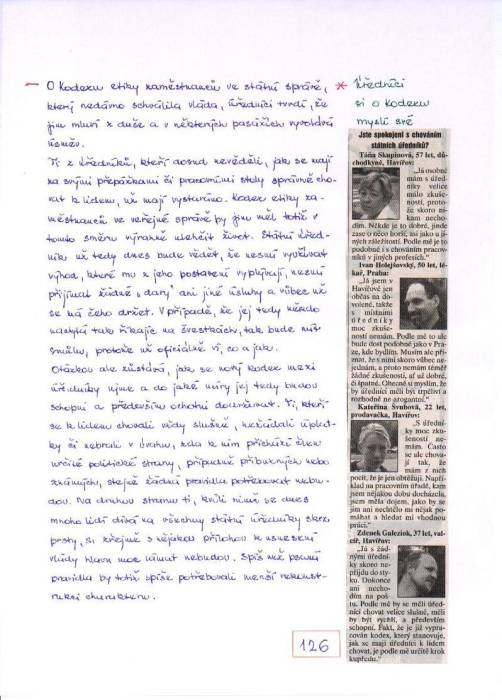 — O Kodexu etiky zaměstnanců ve státní správě,
který nedávno schválila vláda, úředníci tvrdí, že
jim mluví z duše a v některých pasážích vyvolává
úsměv.
Ti z úředníků, kteří dosud nevěděli, jak se mají
za svými přepážkami či pracovními stoly správně cho-
vat k lidem, už mají vystaráno. Kodex etiky za-
městnanců ve veřejné správě by jim měl totiž v
tomto směru výrazně ulehčit život. Státní úřed-
ník už tedy dnes bude vědět, že nesmí využívat
výhod, které mu z jeho postavení vyplývají, nesmí
přijímat žádné "dary" ani jiné úsluhy a vůbec ví
se má čeho držet. V případě, že jej tedy někdo
nachytá tak říkajíc na švestkách, tak bude mít
smůlu, protože už oficiálně ví, co a jak.
Otázkou ale zůstává, jak se nový kodex mezi
úředníky ujme a do jaké míry jej tedy budou
schopni a především ochotni dodržovat. Ti, kteří
se k lidem chovali vždy slušně, nežádali úplat-
ky či nebrali v úvahu, zda k nim přichází člen
určité politické strany, případně příbuzných nebo
známých, stejně žádná pravidla potřebovat nebu-
dou. Na druhou stranu ti, kvůli nimž se dnes
mnoho lidí dívá na všechny státní úředníky skrz
prsty, si zřejmě s nějakou přílohou k usnesení
vlády hlavu moc lámat nebudou. Spíš než psaná
pravidla by totiž spíše potřebovali menší rekonst-
rukci charakteru.
* Úředníci
si o Kodexu
myslí své
Jste spokojeni s chováním
státních úředníků?
Táňa Skupinová, 57 let, dů-
chodkyně, Havířov:
„Já osobně
mám s úřed-
níky velice
málo zkuše-
ností, proto-
že skoro ni-
kam necho-
dím. Někde je to dobré, jinde
zase o něco horší, asi jako u ji-
ných záležitostí. Podle mě je to
podobné i s chováním pracov-
níků v jiných profesích.“
Ivan Holejšovský, 50 let, lé-
kař, Praha:
„Já jsem v
Havířově jen
občas na do-
volené, takže
s místními
úředníky
moc zkuše-
ností nemám. Podle mě to ale
bude dost podobné jako v Pra-
ze, kde bydlím. Musím ale při-
znat, že s nimi skoro vůbec ne-
jednám, a proto nemám téměř
žádné zkušenosti, ať už dobré,
či špatné. Obecně si myslím, že
by úředníci měli být trpěliví a
rozhodně ne arogantní.“
Kateřina Švubová, 22 let,
prodavačka, Havířov:
„S úřední-
ky moc zku-
šeností ne-
mám. Často
se ale chova-
jí tak, že
mám z nich
pocit, že je jen obtěžuji. Napří-
klad na pracovním úřadě, kam
jsem nějakou dobu docházela,
jsem měla dojem, jako by se
jim ani nechtělo mi nějak po-
máhat a hledat mi vhodnou
práci.“
Zdenek Galeziok, 37 let, val-
cíř, Havířov:
„Já s žád-
nými úřední-
ky skoro ne-
přijdu do sty-
ku. Dokonce
ani necho-
dím na poš-
tu. Podle mě by se měli úřed-
níci chovat velice slušně, měli
by být rychlí, a především
schopní. Fakt, že je již vypra-
cován kodex, který stanovuje,
jak se mají úředníci k lidem
chovat, je podle mě určitě krok
kupředu.“
126